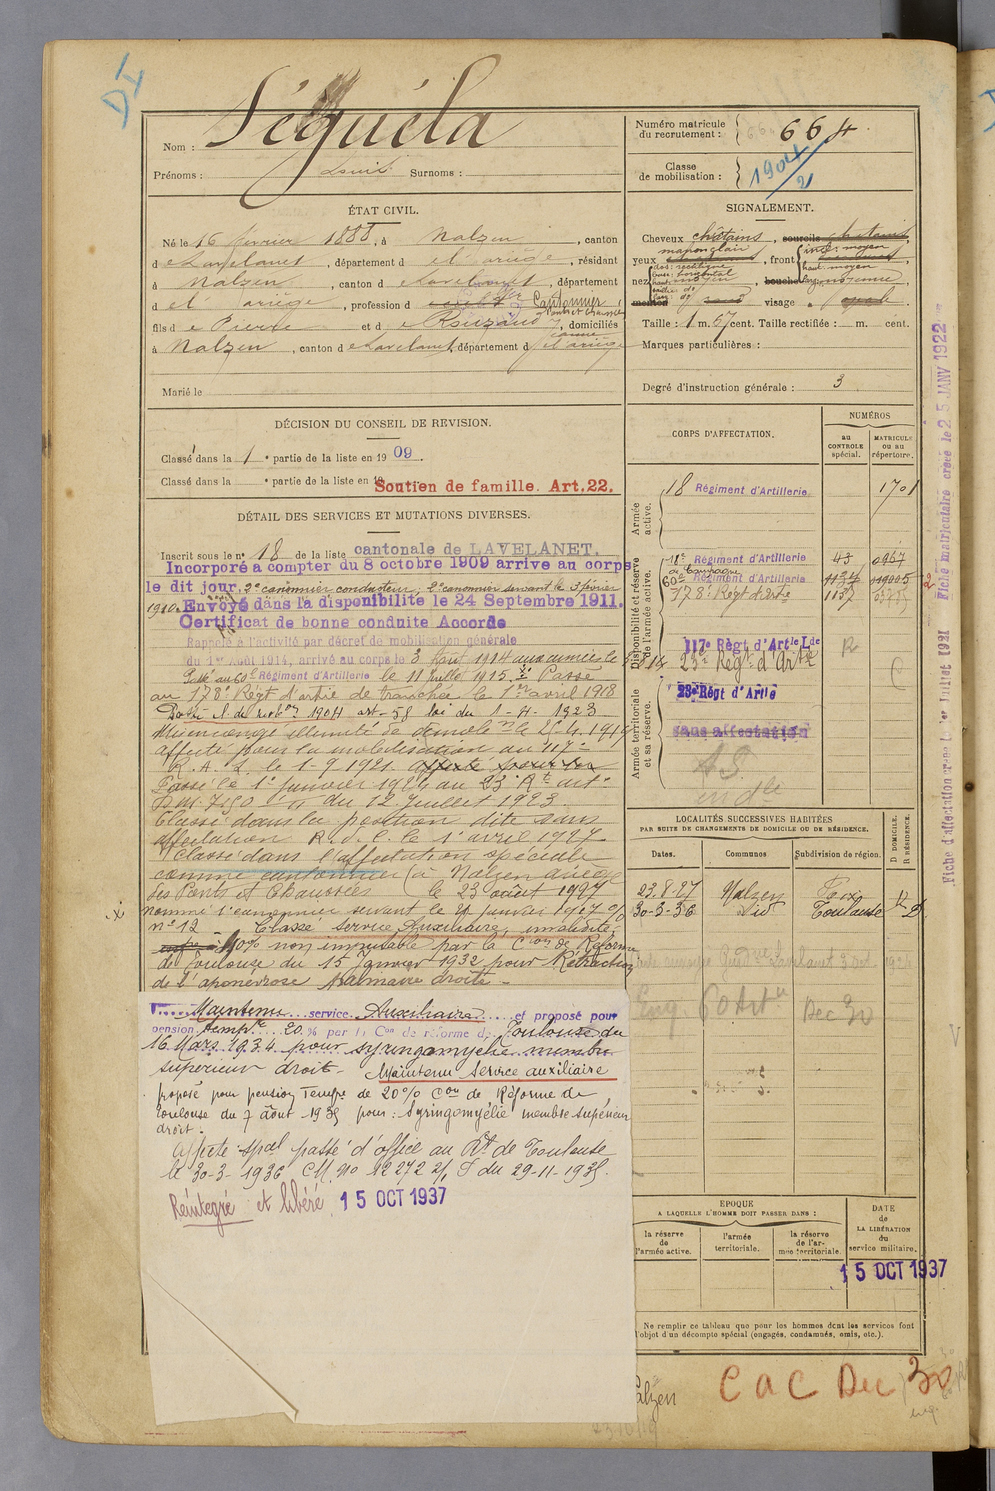 Séguéla
Nom :
Prénoms : Louis Surnoms :
Numéro matricule
du recrutement : 664
Classe
de mobilisation : 1904/2
ÉTAT CIVIL.
Né le 16 février 1888, à Nalzen, canton
de Lavelanet, département de l'Ariège, résidant
à Nalzen, canton de Lavelanet, département
de l'Ariège, profession de Cantonnier
fils de Pierre et de Rouzaud, domiciliés
à Nalzen, canton de Lavelanet, département de l'Ariège
Marié le
SIGNALEMENT.
Cheveux châtains, sourcils châtains,
yeux marron clair, front moyen
nez moyen, bouche moyenne,
menton rond visage ovale
Taille : 1 m. 57 cent. Taille rectifiée : m. cent.
Marques particulières :
Degré d'instruction générale : 3
DÉCISION DU CONSEIL DE REVISION.
Classé dans la 1e partie de la liste en 1909.
Classé dans la e partie de la liste en 19
Soutien de famille. Art. 22.
DÉTAIL DES SERVICES ET MUTATIONS DIVERSES.
Inscrit sous le n° 18 de la liste cantonale de LAVELANET.
Incorporé à compter du 8 octobre 1909 arrive au corps
le dit jour. 2e canonnier conducteur ; 2e canonnier servant le 3 février
1910. Envoyé dans la disponibilité le 24 Septembre 1911.
Certificat de bonne conduite Accordé
Rappelé à l'activité par décret de mobilisation générale
du 1er Août 1914, arrivé au corps le 3 Août 1914 aux armées le
Passé au 60e Régiment d'Artillerie le 11 Juillet 1915. Passé
au 178e Régt d'artie de tranchée le 1er avril 1918
Cl. de mobon 1904 art. 58 loi du 1-4-1923
Mis en congé illimité de démobon le 2-4-1919
affecté pour la mobilisation au 117e
R.A.L. le 1-9 1921.
Passé le 1er janvier 1924 au 23e Rt art.
D.M. 7190 du 12 Juillet 1923.
Classé dans la position dite sans
affectation R.d.C. le 1er avril 1927
Classé dans l'affectation spéciale
comme cantonnier (à Nalzen Ariège
des Ponts et Chaussées le 23 août 1927
nommé 1er canonnier servant le janvier 1917
n° 12 - Classé service Auxiliaire, invalidité
10% non imputable par la Con de Réforme
de Toulouse du 15 Janvier 1932 pour Rétraction
de l'aponévrose palmaire droite -
Maintenu service Auxiliaire et proposé pour
pension Tempre 20 % par la Con de réforme de Toulouse du
16 Mars 1934 pour syringomyélie membre
supérieur droit - Maintenu Service auxiliaire
proposé pour pension Tempre de 20% Con de Réforme de
Toulouse du 7 août 1935 pour : Syringomyélie membre supérieur
droit.
Affecté spal passé d'office au Rt de Toulouse
le 30-3-1936 C.M. No 12272 2/1 S du 29-11-1935.
Réintégré et libéré 15 OCT 1937
CORPS D'AFFECTATION.
NUMÉROS
au
CONTROLE
spécial.
MATRICULE
OU AU
répertoire.
Armée
active.
18 Régiment d'Artillerie 1701
Disponibilité et réserve
de l'armée active.
11e Régiment d'Artillerie 43 0967
de Campagne
60e Régiment d'Artillerie
178e Régt d'Artie
117e Régt d'Artie Lde R
23e Régt d'Artie
Armée territoriale
et sa réserve.
23e Régt d'Artie
sans affectation
AS
LOCALITÉS SUCCESSIVES HABITÉES
PAR SUITE DE CHANGEMENTS DE DOMICILE OU DE RÉSIDENCE.
Dates. Communes Subdivision de région. D DOMICILE. R RÉSIDENCE.
23.8.27 Nalzen Foix D
30-3-36 dito Toulouse D
Dec 30
EPOQUE
A LAQUELLE L'HOMME DOIT PASSER DANS :
la réserve
de
l'armée active.
l'armée
territoriale.
la réserve
de l'ar-
mée territoriale.
DATE
de
LA LIBÉRATION
du
service militaire.
15 OCT 1937
Ne remplir ce tableau que pour les hommes dont les services font
l'objet d'un décompte spécial (engagés, condamnés, omis, etc.).
Nalzen
C a C Dec 30
Fiche d'affectation créée le 1er Juillet 1921 Fiche matriculaire créée le 25 JANV 1922